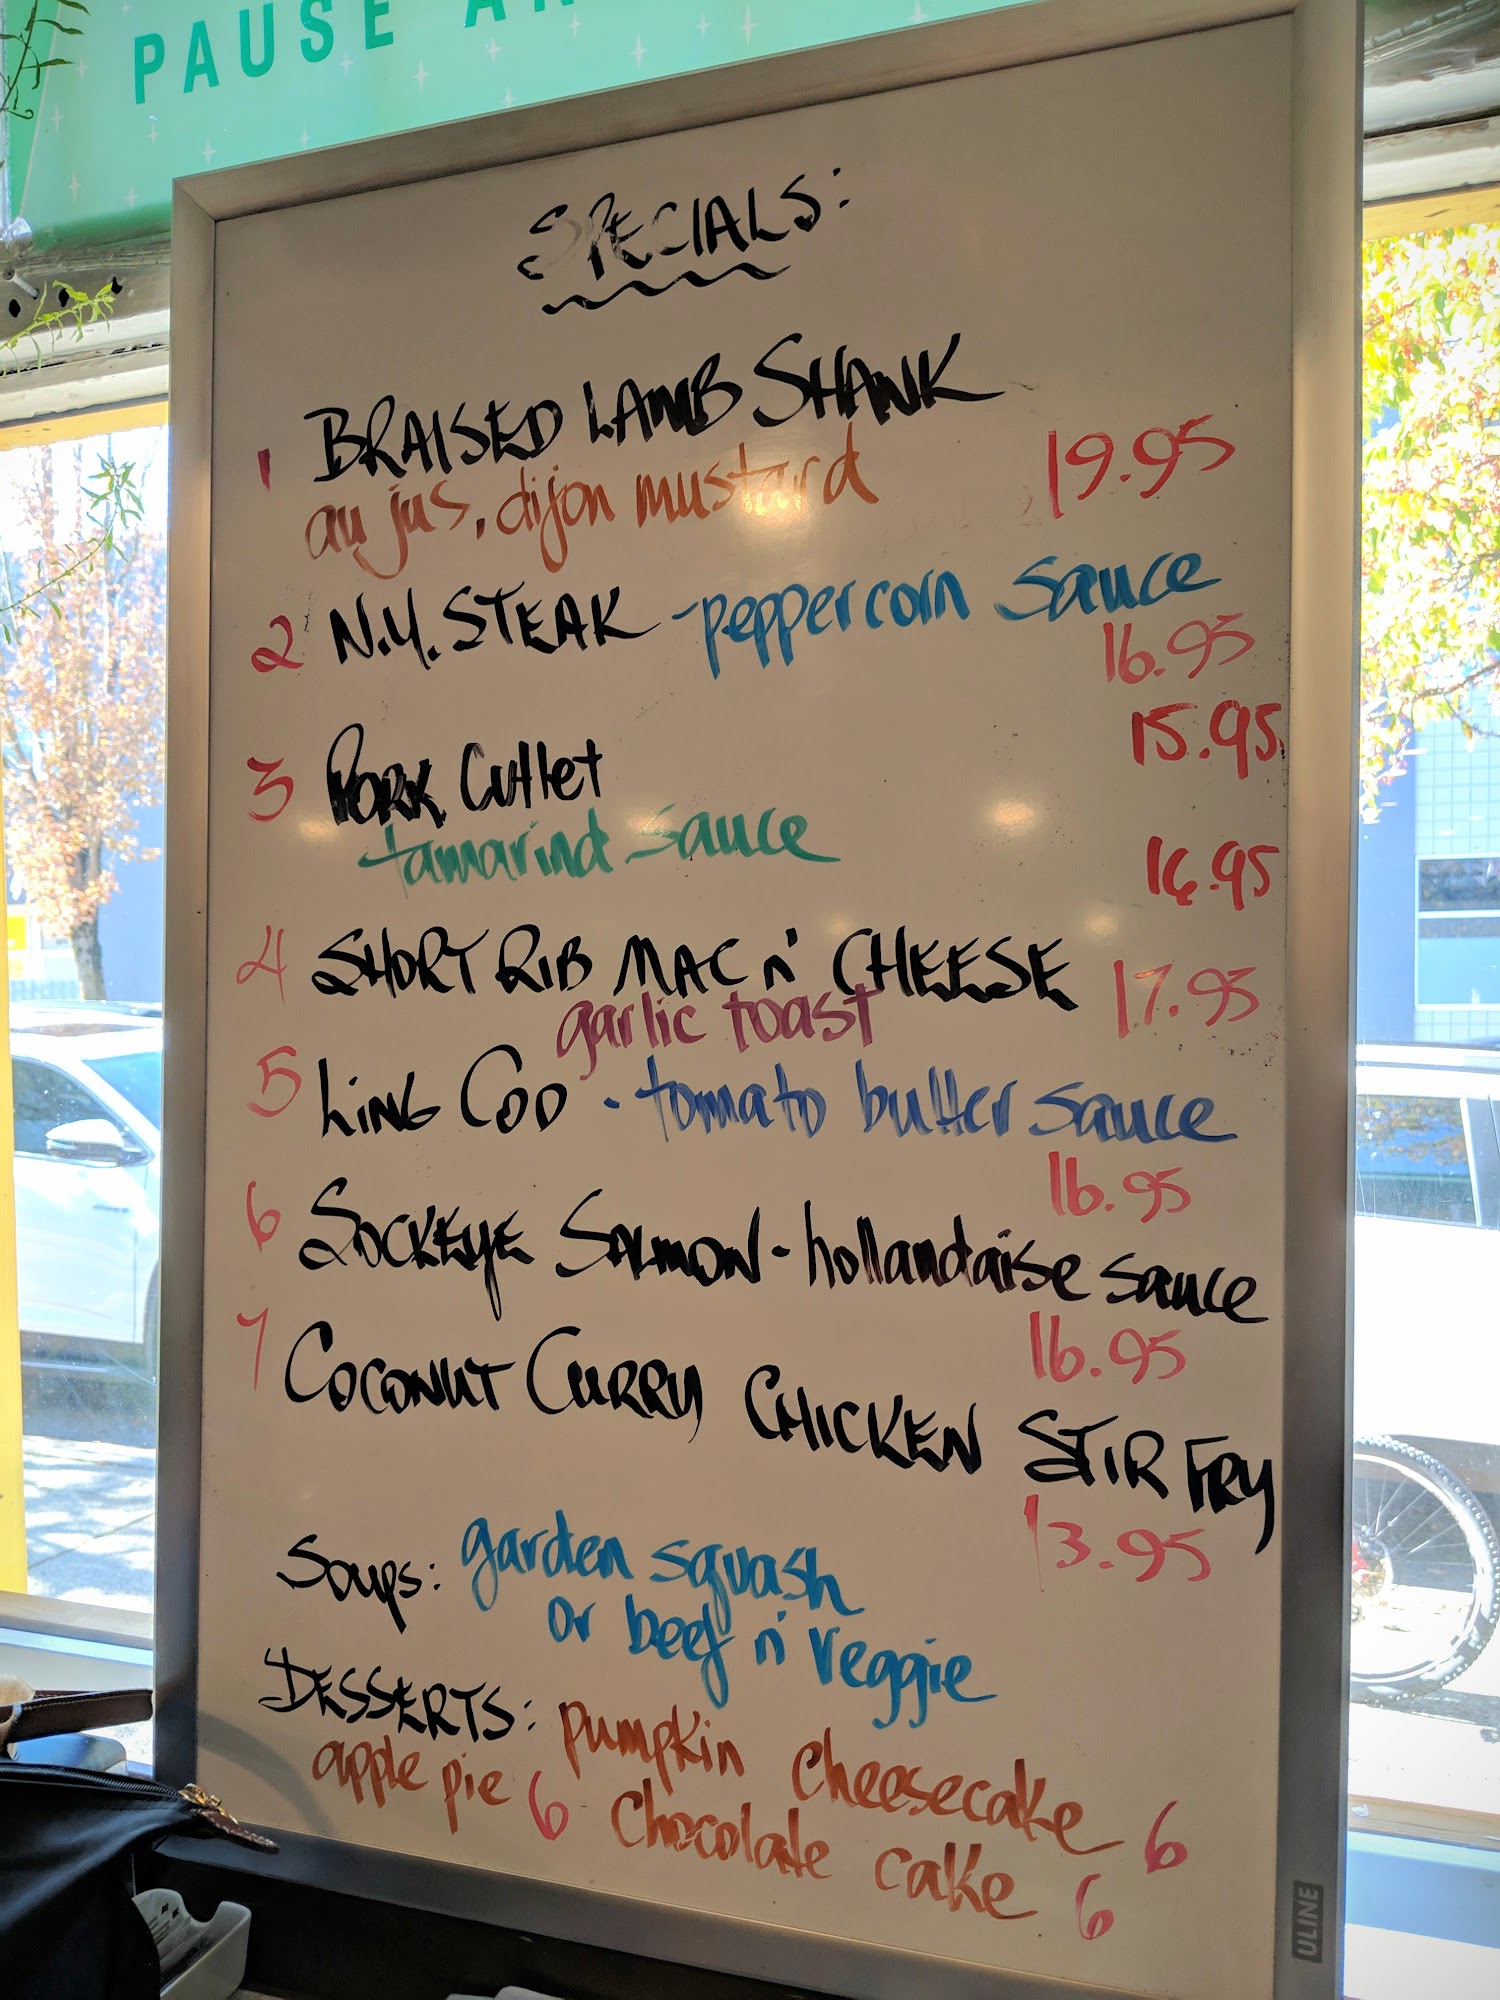 PAUSE
SPECIALS:
1 BRAISED LAMB SHANK
au jus, dijon mustard 19.95
2 N.Y. STEAK - peppercorn sauce
16.95
15.95
3 PORK Cutlet
tamarind sauce
16.95
4 SHORT RIB MAC n' CHEESE 17.95
garlic toast
5 LING COD - tomato butter sauce
16.95
6 SOCKEYE SALMON - hollandaise sauce
16.95
7 COCONUT CURRY CHICKEN STIR FRY
13.95
Soups: garden squash
or beef n' veggie
DESSERTS: pumpkin cheesecake 6
apple pie 6 chocolate cake 6
ULINE